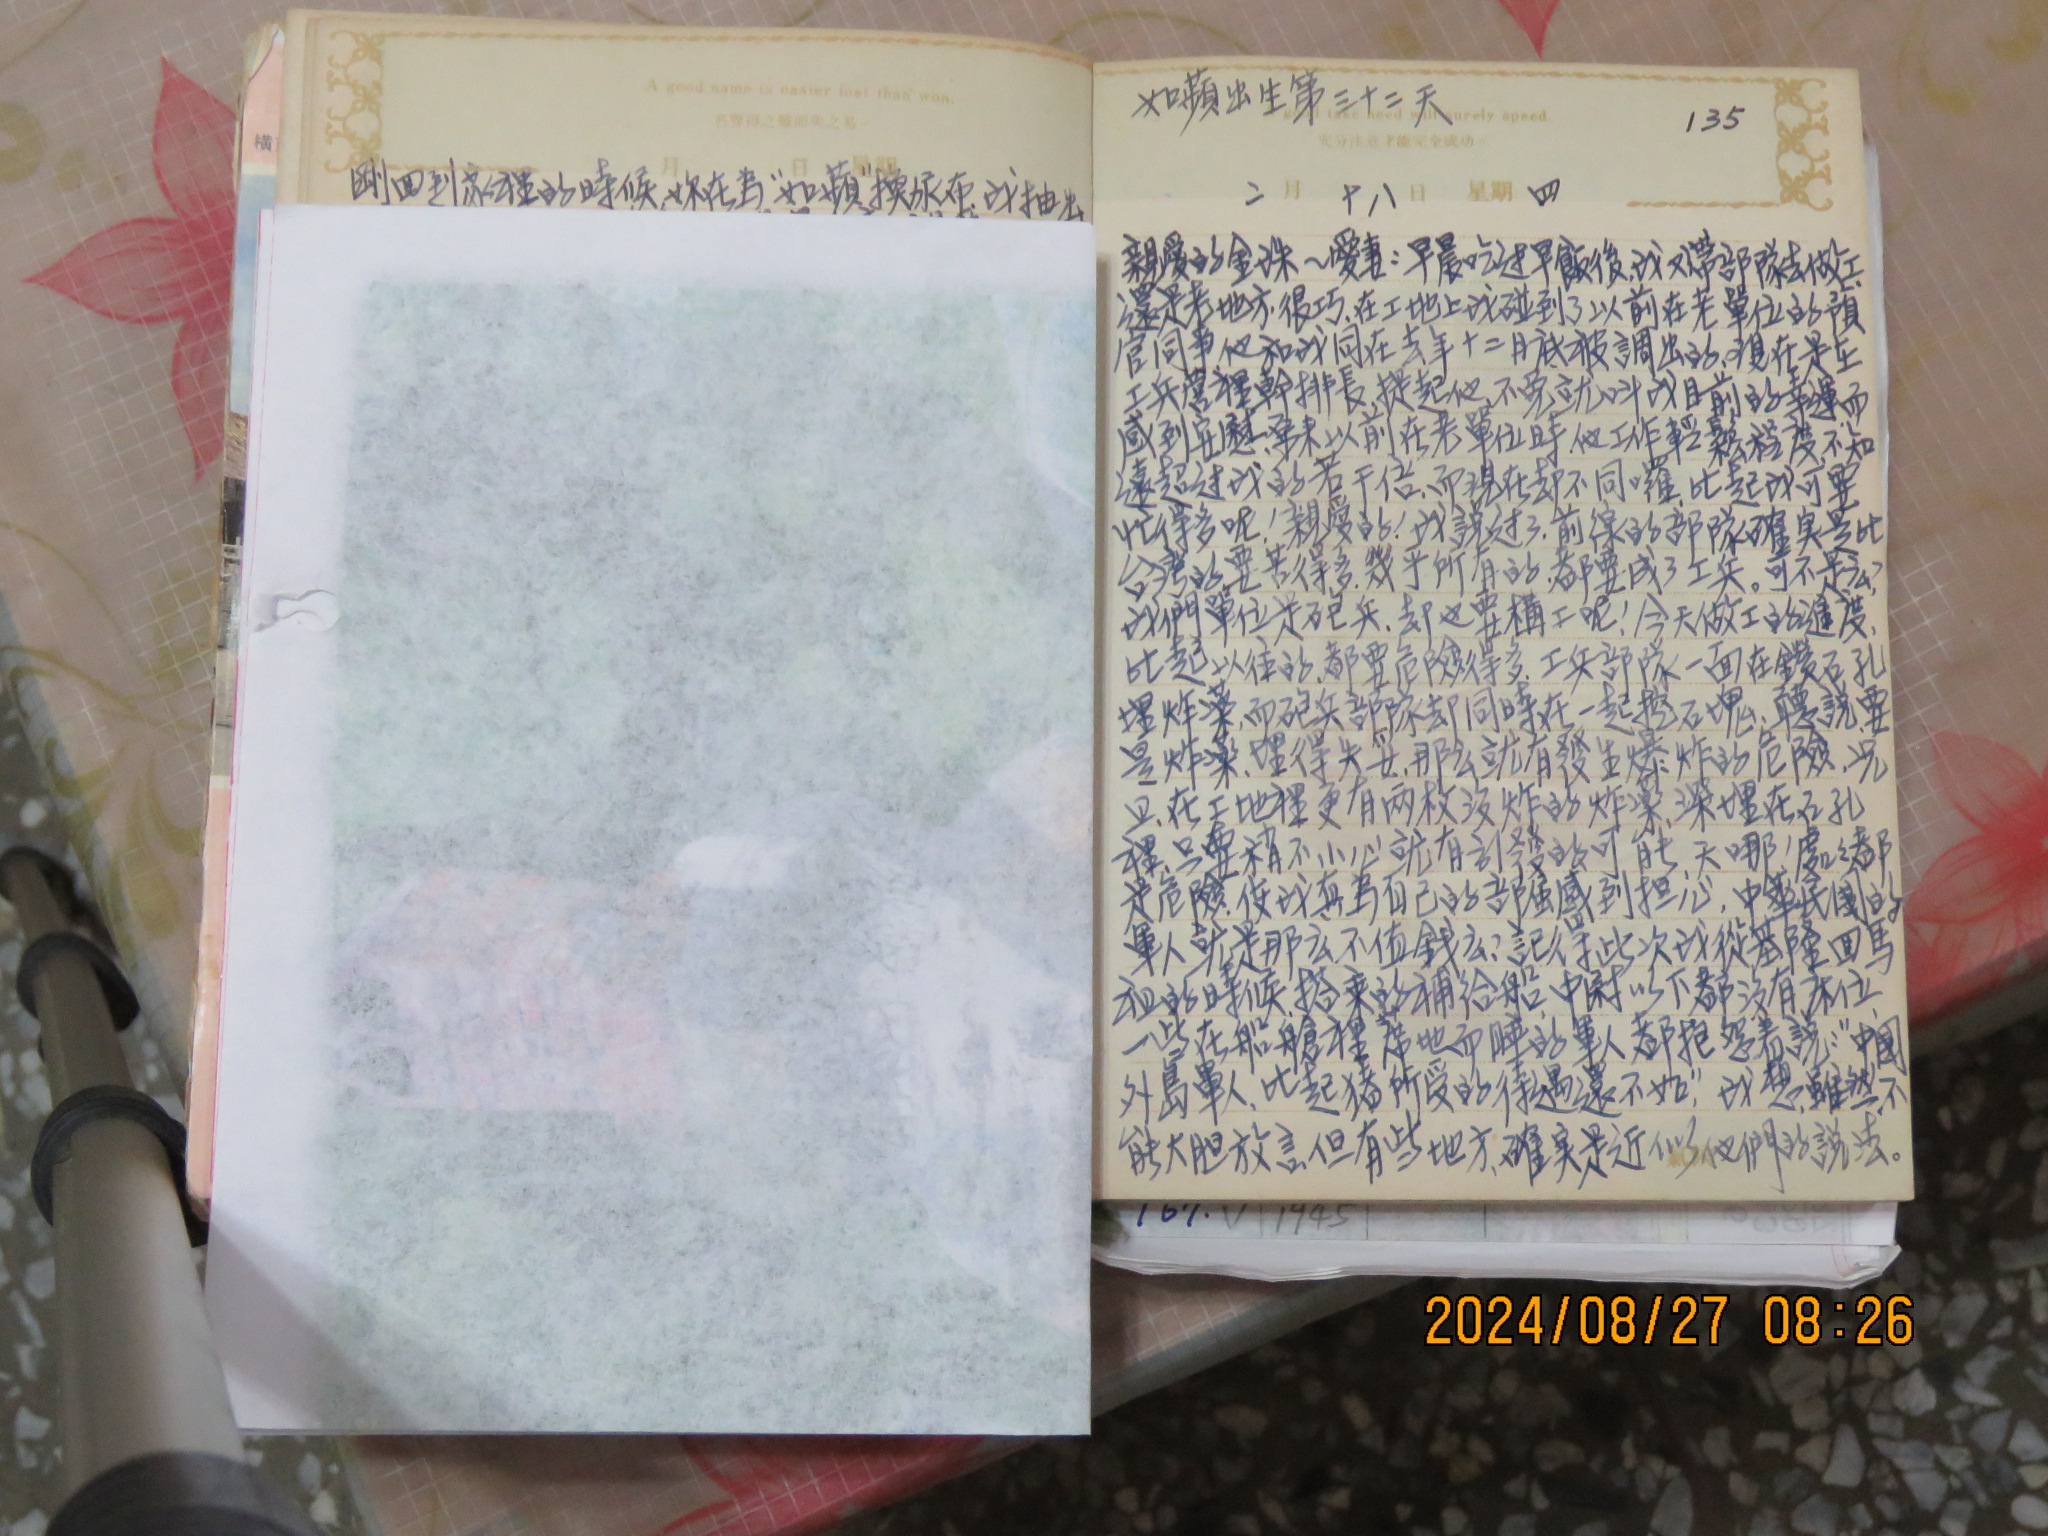 A good name is easier lost than won.
月 日 星期
剛回到家裡的時候,妳在為"如蘋"換尿布,我抽出
橫
如蘋出生第三十二天
135
take heed will surely speed.
充分注意才能完全成功。
二月 十八日 星期四
親愛的金珠~愛妻:早晨吃过早飯後,我又帶部隊去做工,
還是老地方,很巧,在工地上我碰到了以前在老單位的預
官同事,他和我同在去年十二月底被調出的,現在是在
工兵營裡幹排長,提起他,不免就叫我目前的幸運而
感到安慰,原來以前在老單位時,他工作輕鬆程度不知
遠超过我的若干倍,而現在却不同囉,比起我可要
忙得多呢!親愛的!我說过了,前線的部隊確実是比
台湾的要苦得多,幾乎所有的,都要成了工兵。可不是么?
我們單位是砲兵,却也要構工呢!今天做工的進度,
比起以往的,都要危險得多,工兵部隊一面在鑽石孔
埋炸藥,而砲兵部隊却同時在一起挖石塊,聽說要
是炸藥,埋得失妥,那么就有發生爆炸的危險,况
且,在工地裡更有两枚没炸的炸藥,深埋在石孔
裡,只要稍不小心就有引發的可能,天哪!處處都
是危險,使我真為自己的部隊感到担心,中華民國的
軍人就是那么不值錢么?記得此次我從基隆回馬
祖的時候,搭乘的補給船,中尉以下都没有床位,
一些在船艙裡席地而睡的軍人都抱怨着說:"中國
外島軍人,比起猪所受的待遇還不如"。我想,雖然不
能大胆放言,但有些地方,確実是近似了他們的說法。
167. V 1945
2024/08/27 08:26